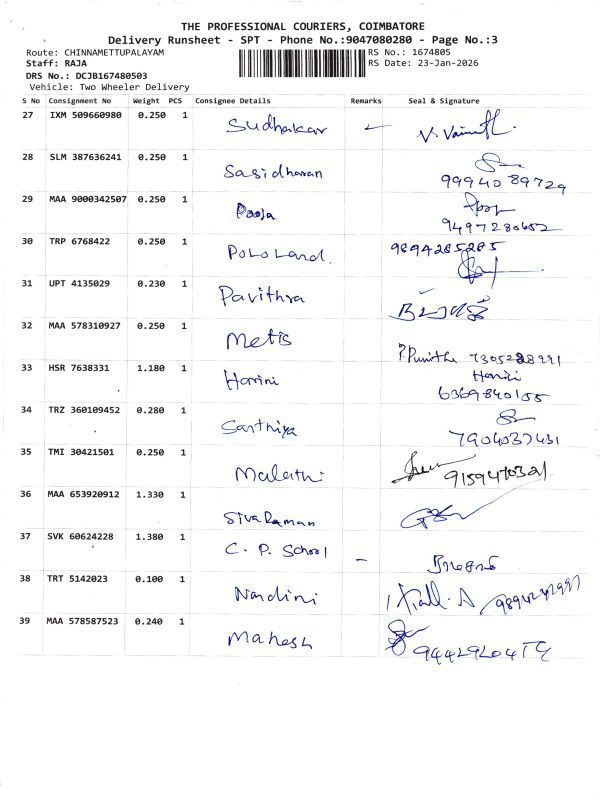 THE PROFESSIONAL COURIERS, COIMBATORE
Delivery Runsheet - SPT - Phone No.:9047080280 - Page No.:3
Route: CHINNAMETTUPALAYAM RS No.: 1674805
Staff: RAJA RS Date: 23-Jan-2026
DRS No.: DCJB167480503
Vehicle: Two Wheeler Delivery
S No Consignment No Weight PCS Consignee Details Remarks Seal & Signature
27 IXM 509660980 0.250 1 Sudhakar
28 SLM 387636241 0.250 1 Sasidharan
99940 89729
29 MAA 9000342507 0.250 1 Pooja
9497280652
30 TRP 6768422 0.250 1 PoLo Land. 9894285285
31 UPT 4135029 0.230 1 Pavithra
32 MAA 578310927 0.250 1 Metis
P.Punitha
33 HSR 7638331 1.180 1 Harini Harini
6369840155
34 TRZ 360109452 0.280 1 Santhiya
7904037431
35 TMI 30421501 0.250 1 Malathi 9159470321
36 MAA 653920912 1.330 1 Siva Raman
37 SVK 60624228 1.380 1 C. P. School -
38 TRT 5142023 0.100 1 Nandini
39 MAA 578587523 0.240 1 Mahesh